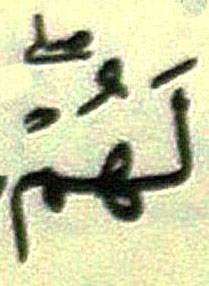 لَهُمْۖ